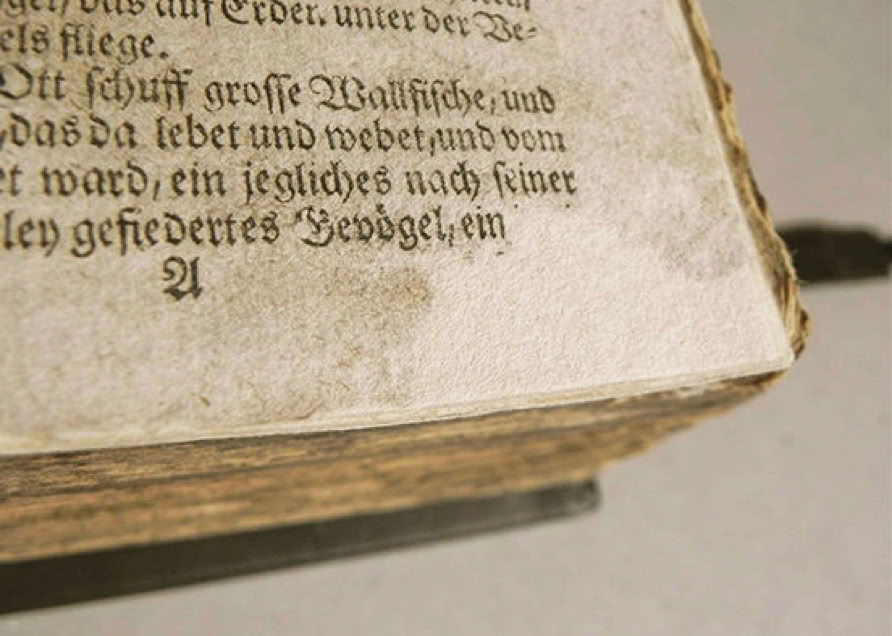 das auff Erden, unter der Ve-
els fliege.
Ott schuff grosse Wallfische, und
, das da lebet und webet, und vom
et ward, ein jegliches nach seiner
ley gefiedertes Gevögel, ein
A